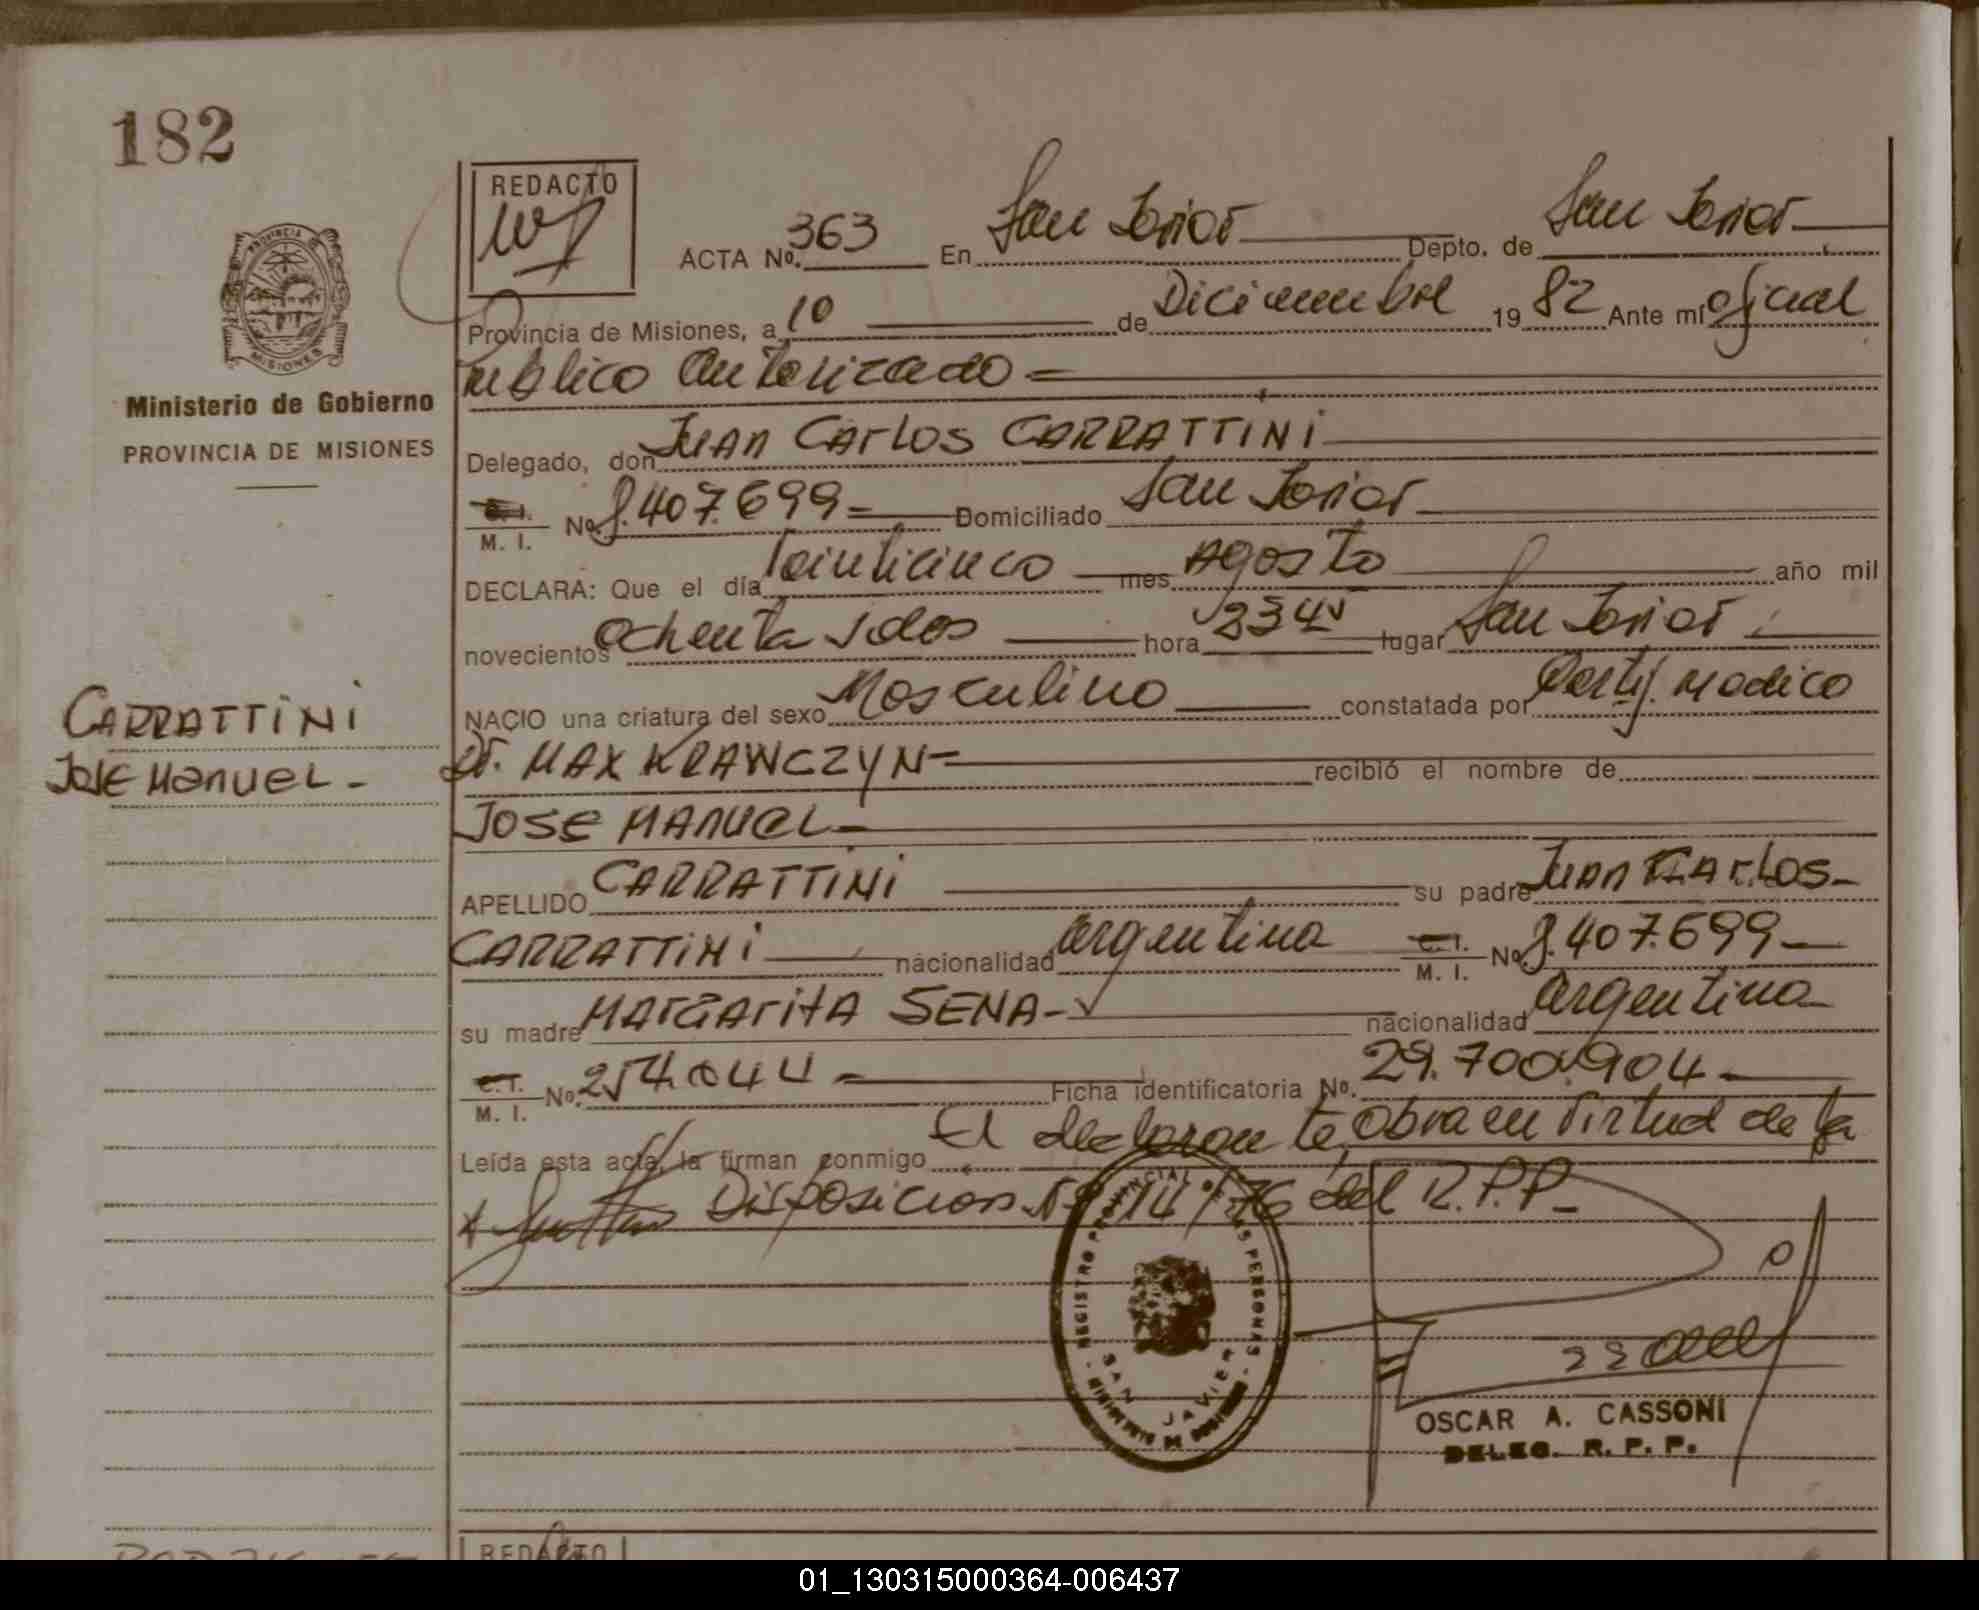 182
REDACTO
ACTA No. 363 En San Javier Depto. de San Javier
Provincia de Misiones, a 10 de Diciembre 1982 Ante mi oficial
Publico Autorizado =
Delegado, don Juan Carlos CARRATTINI
C. I. M. I. No. 8.407.699= Domiciliado San Javier
DECLARA: Que el día veinticinco mes Agosto año mil
novecientos ochenta y dos hora 2345 lugar San Javier
NACIO una criatura del sexo Masculino constatada por Certif. Medico
Dr. MAX KRAWCZYN= recibió el nombre de
JOSE MANUEL-
APELLIDO CARRATTINI su padre Juan Carlos-
CARRATTINI nacionalidad argentina C. I. M. I. No. 8.407.699-
su madre MARGARITA SENA- nacionalidad argentina
C. I. M. I. No. 254.044- Ficha identificatoria No. 29.700.904-
Leída esta acta, la firman conmigo El declarante, Obra en Virtud de la
Disposicion Nº 14/76 del R.P.P.-
Ministerio de Gobierno
PROVINCIA DE MISIONES
CARRATTINI
Jose Manuel-
PROVINCIA DE
MISIONES
REGISTRO PROVINCIAL DE LAS PERSONAS
SAN JAVIER
OSCAR A. CASSONI
DELEG. R. P. P.
REDACTO
01_130315000364-006437